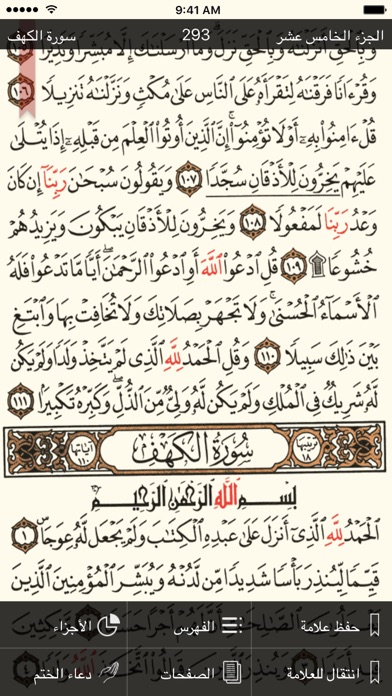 9:41 AM
الجزء الخامس عشر 293 سورة الكهف
وَبِالْحَقِّ أَنزَلْنَاهُ وَبِالْحَقِّ نَزَلَ وَمَا أَرْسَلْنَاكَ إِلَّا مُبَشِّرًا وَنَذِيرًا ١٠٥
وَقُرْءَانًا فَرَقْنَاهُ لِتَقْرَأَهُ عَلَى النَّاسِ عَلَىٰ مُكْثٍ وَنَزَّلْنَاهُ تَنزِيلًا ١٠٦
قُلْ ءَامِنُوا بِهِ أَوْ لَا تُؤْمِنُوا إِنَّ الَّذِينَ أُوتُوا الْعِلْمَ مِن قَبْلِهِ إِذَا يُتْلَىٰ
عَلَيْهِمْ يَخِرُّونَ لِلْأَذْقَانِ سُجَّدًا ١٠٧ وَيَقُولُونَ سُبْحَانَ رَبِّنَا إِن كَانَ
وَعْدُ رَبِّنَا لَمَفْعُولًا ١٠٨ وَيَخِرُّونَ لِلْأَذْقَانِ يَبْكُونَ وَيَزِيدُهُمْ
خُشُوعًا ۩ ١٠٩ قُلِ ادْعُوا اللَّهَ أَوِ ادْعُوا الرَّحْمَٰنَ أَيًّا مَّا تَدْعُوا فَلَهُ
الْأَسْمَاءُ الْحُسْنَىٰ وَلَا تَجْهَرْ بِصَلَاتِكَ وَلَا تُخَافِتْ بِهَا وَابْتَغِ
بَيْنَ ذَٰلِكَ سَبِيلًا ١١٠ وَقُلِ الْحَمْدُ لِلَّهِ الَّذِي لَمْ يَتَّخِذْ وَلَدًا وَلَمْ يَكُن
لَّهُ شَرِيكٌ فِي الْمُلْكِ وَلَمْ يَكُن لَّهُ وَلِيٌّ مِّنَ الذُّلِّ وَكَبِّرْهُ تَكْبِيرًا ١١١
ترتيبها ١٨ سُورَةُ الكَهْفِ آياتها ١١٠
بِسْمِ اللَّهِ الرَّحْمَٰنِ الرَّحِيمِ
الْحَمْدُ لِلَّهِ الَّذِي أَنزَلَ عَلَىٰ عَبْدِهِ الْكِتَابَ وَلَمْ يَجْعَل لَّهُ عِوَجًا ١
قَيِّمًا لِّيُنذِرَ بَأْسًا شَدِيدًا مِّن لَّدُنْهُ وَيُبَشِّرَ الْمُؤْمِنِينَ الَّذِينَ
حفظ علامة الفهرس الأجزاء
انتقال للعلامة الصفحات دعاء الختم